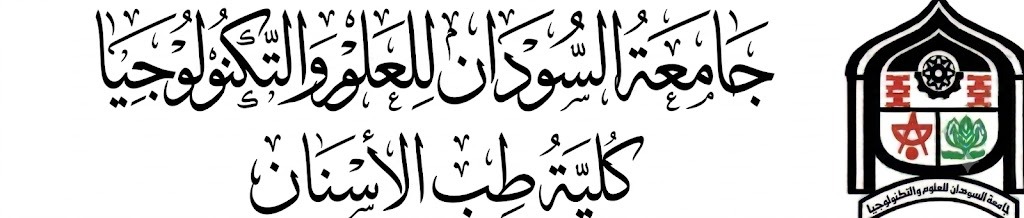 جَامَعَةُ السُّوْدَان لِلعَلوْمِ وَالتِّكنُولُوجِيَا
كُليَّةُ طِب الأسْنَان
جامعة السودان للعلوم والتكنولوجيا